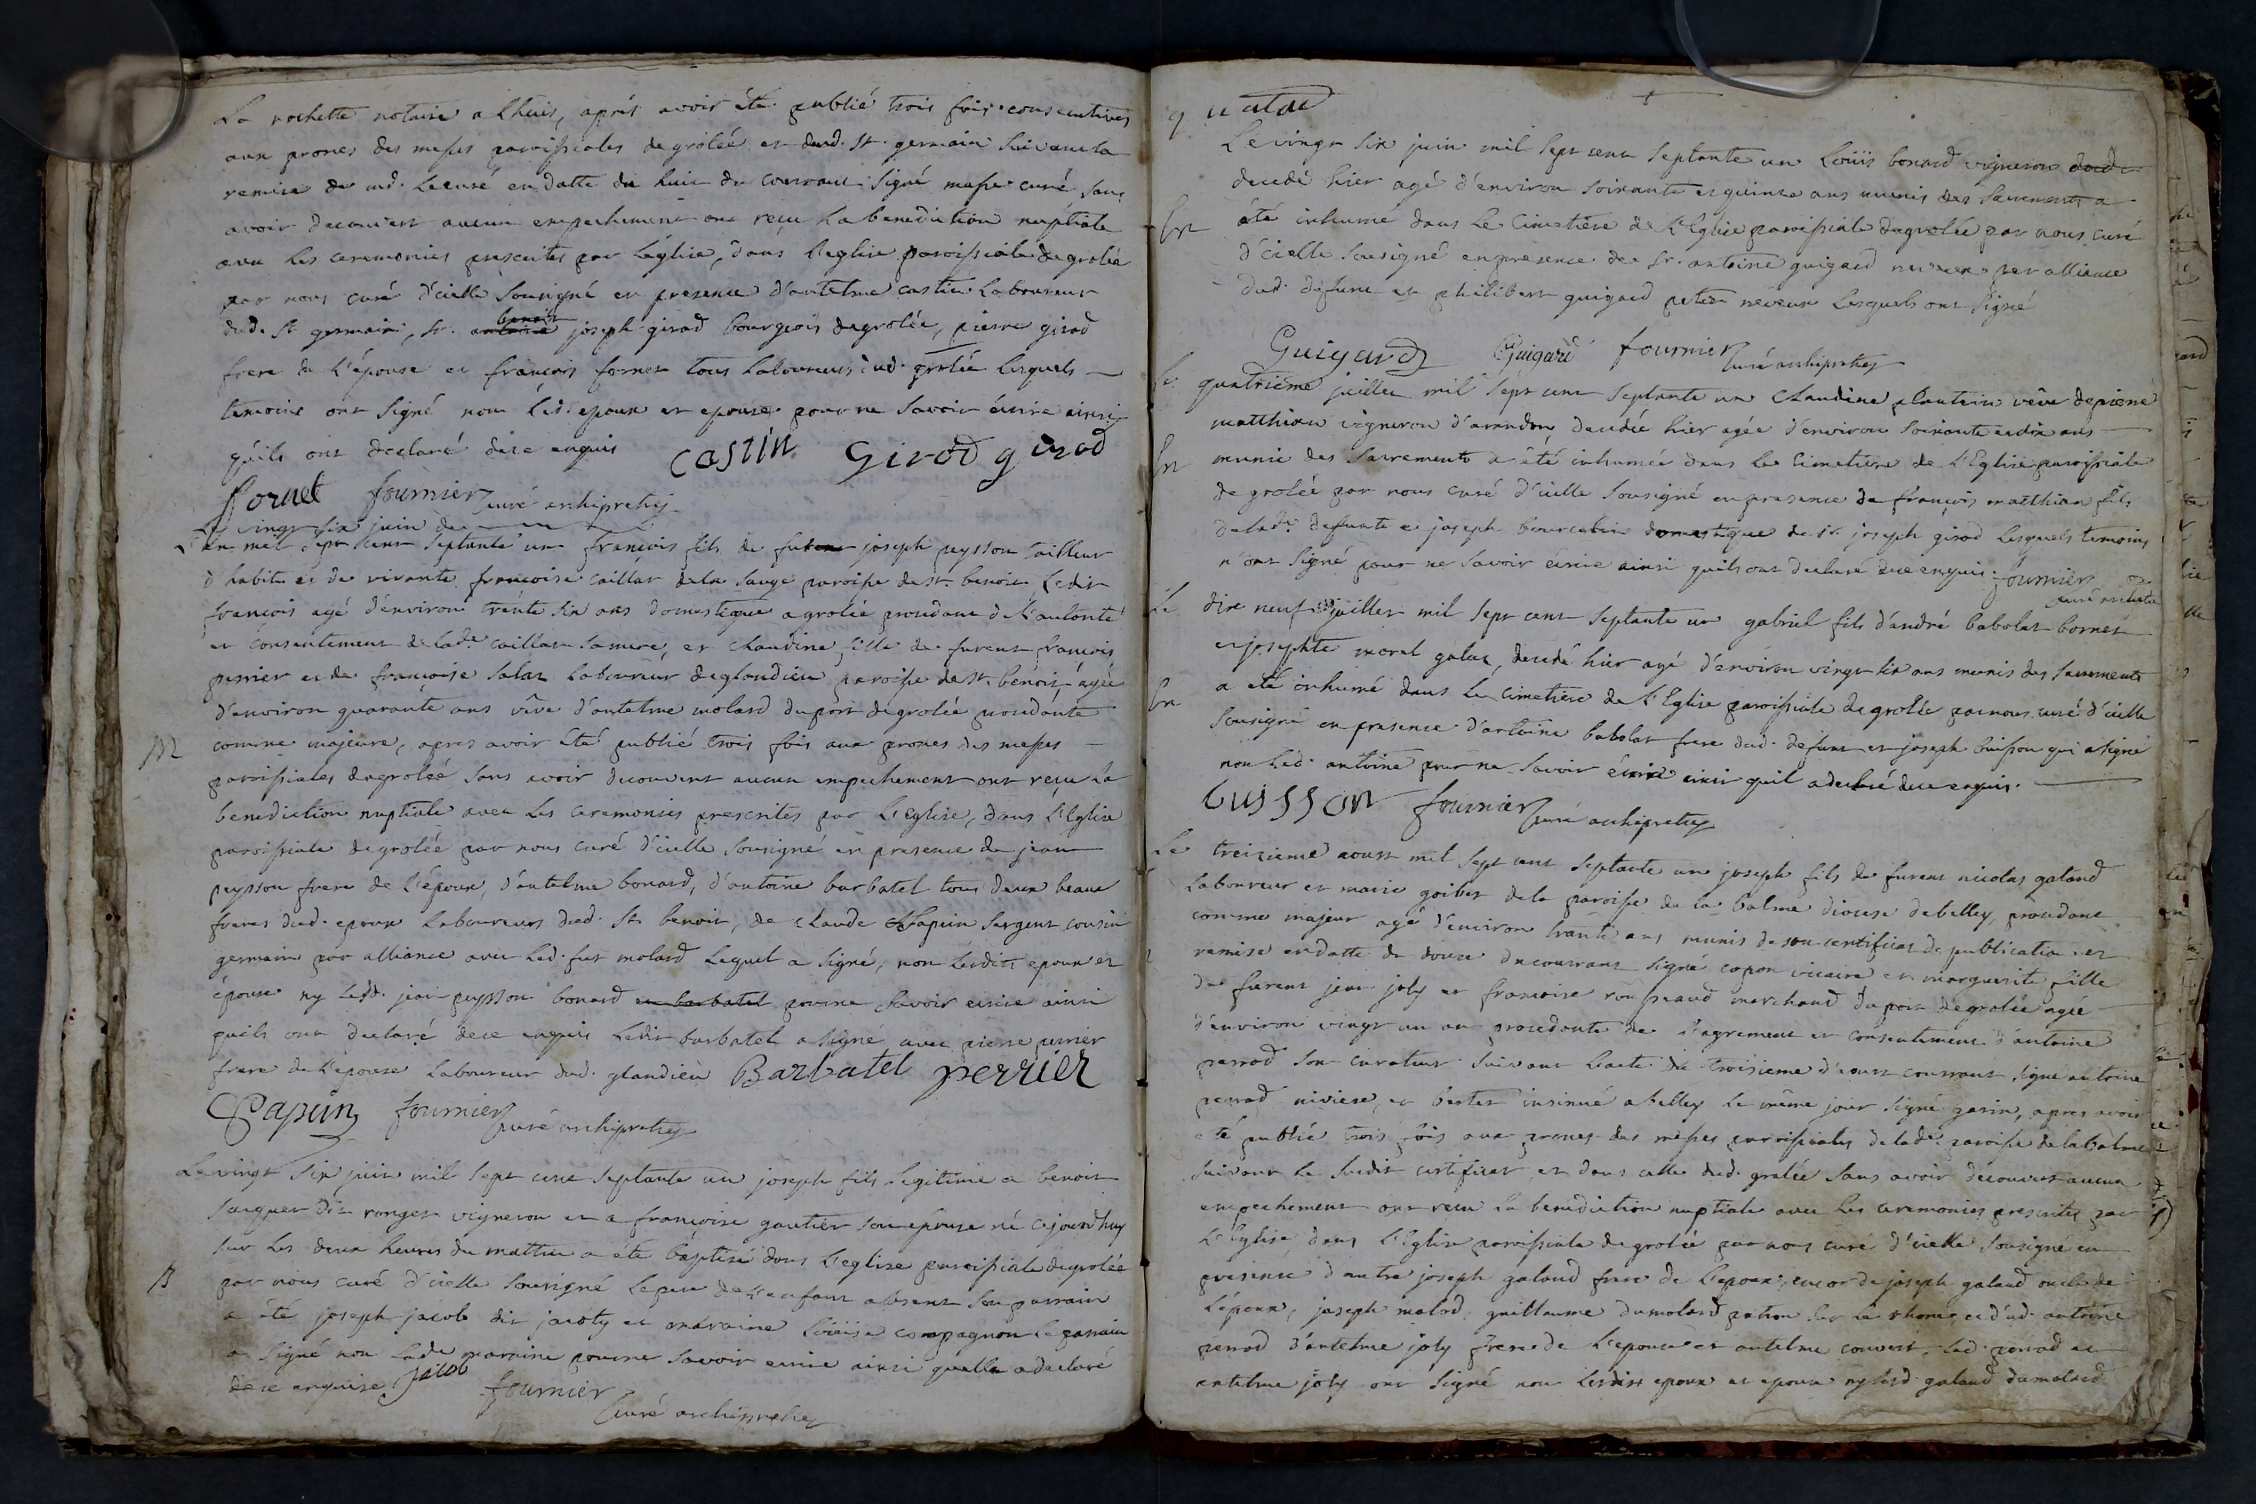 La rochette notaire a Lhuis, après avoir été publié trois fois consecutives
aux prones des messes paroissiales de grolée et dud. St. germain suivant la
remise de md. Le curé en datte du huit du courrant signé masse curé sans
avoir decouvert aucun empechement ont reçu La benediction nuptiale
avec Les ceremonies prescrites par L'église, dans L'eglise paroissiale de grolée
par nous curé d'icelle sousigné en presence d'antelme castin Laboureur
dud. St germain, sr. benoit joseph girod bourgeois de grolée, pierre girod
frere de L'épouse et françois fornet tous Laboureurs dud. grolée Lesquels
temoins ont signé non Lesd. epoux et epouse pour ne savoir écrire ainsi
qu'ils ont declaré dece enquis castin Girod girod
fornet fournier curé archipretre
Le vingt six juin
an mil sept cent septante un françois fils de feu joseph peysson tailleur
d'habits et de vivante françoise caillat de la sauge paroisse de St. benoit Ledit
françois agé d'environ trente six ans domestique a grolée procedant de L'autorité
et consentement de lade. caillat sa mere, et claudine fille de furent françois
perrier et de françoise salaz Laboureur de glandieu paroisse de St. benoit, agée
d'environ quarante ans vêve d'antelme molard du port de grolée procedante
M comme majeure, apres avoir été publié trois fois aux prones des messes
paroissiales de grolée sans avoir decouvert aucun empechement ont reçu La
benediction nuptiale avec Les ceremonies prescrites par L'eglise, dans L'Eglise
paroissiale de grolée par nous curé d'icelle sousigné en presence de jean
peysson frere de L'époux, d'antelme bonard, d'antoine barbatel tous deux beaux
freres dud. epoux Laboureurs dud. St. benoit, de claude Chapuin sergent cousin
germain par alliance avec Led. feu molard Lequel a signé, non Lesdits epoux et
épouse ny Lesd. jean peysson bonard et barbatel pour ne savoir ecrire ainsi
qu'ils ont declaré dece enquis Ledit barbatel a signé avec pierre perrier
frere de L'épouse Laboureur dud. glandieu Barbatel perrier
Capuin fournier curé archipretre
Le vingt six juin mil sept cent septante un joseph fils legitime a benoit
dit ronger vigneron et a françoise gautier son epouse né cejourd'huy
sur Les deux heures du mattin a été baptisé dans L'eglise paroissiale de grolée
B par nous curé d'icelle sousigné Le pere de L'enfant absent son parrain
a été joseph jacob dit jacoty et marraine Loüise compagnon Le parrain
a signé non Lade. marraine pour ne savoir ecrire ainsi qu'elle a declaré
dece enquise jacob
fournier
curé archipretre
quatre
Le vingt six juin mil sept cent septante un Loüis bonard vigneron
decedé hier agé d'environ soixante et quinze ans munis des sacrements a
Ent été inhumé dans Le Cimetiere de L'Eglise paroissiale de grolée par nous curé
d'icelle sousigné en presence de sr. antoine guigard neveux par alliance
dud. defunt et philibert guigard petit neveux Lesquels ont signé
Guigard Guigard fournier curé archipretre
Le quatrieme juillet mil sept cent septante un claudine plantin vêve de pierre
matthian vigneron d'arandon, decedée hier agée d'environ soixante et dix ans
Ent munie des Sacrements a été inhumée dans Le Cimetiere de L'Eglise paroissiale
de grolée par nous curé d'icelle sousigné en presence de françois matthian fils
de lade. defunte et joseph bourcelin domestique de sr. joseph girod Lesquels temoins
n'ont signé pour ne savoir écrire ainsi qu'ils ont declaré dece enquis. fournier
curé archipretre
Le dix neuf juillet mil sept cent septante un gabriel fils d'andré babolat bornet
et josephte morel galaz, decedé hier agé d'environ vingt six ans munis des sacrements
Ent a été inhumé dans Le Cimetiere de L'Eglise paroissiale de grolée par nous curé d'icelle
sousigné en presence d'antoine babolat frere dud. defunt et joseph buisson qui a signé
non Led. antoine pour ne savoir écrire ainsi qu'il a declaré dece enquis.
buisson fournier curé archipretre
Le treizieme aoust mil sept cent septante un joseph fils de furent nicolas galand
Laboureur et marie goibet de la paroisse de la balme diocese de belley, procedant
comme majeur agé d'environ trente ans munis de son certificat de publication et
remise en datte du douze du courrant signé capon vicaire et marguerite fille
de furent jean joly et françoise rousseaud marchand du port de grolée agée
d'environ vingt un an procedante de L'agrement et consentement d'antoine
perrod son curateur suivant L'acte du troisieme d'aoust courrant signé antoine
perrod, niviere, et bertet insinué a belley Le même jour signé garin, apres avoir
été publié trois fois aux prones des messes paroissiales de lade. paroisse de la balme
suivant Le susdit certificat et dans celle dud. grolée sans avoir découvert aucun
empechement ont reçu La benediction nuptiale avec Les ceremonies prescrites par
L'Eglise, dans L'Eglise paroissiale de grolée par nous curé d'icelle sousigné en
presence d'autre joseph galand frere de L'epoux, encor de joseph galand oncle de
L'époux, joseph malod, guillaume dumolard patron sur Le rhone, et dud. antoine
perrod d'antelme joly frere de L'epouse et antelme convert, Led. perrod et
antelme joly ont signé non Lesdits epoux et epouse ny Lesd. galand dumolard